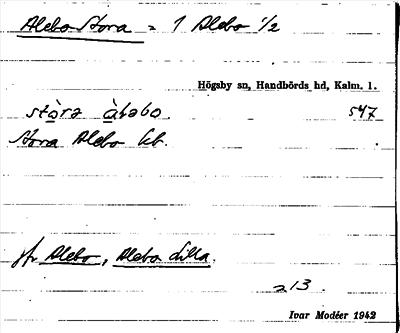 Alebo Stora = 1 Alebo 1/2
Högsby sn, Handbörds hd, Kalm. l.
stòrə àləbo 547
Stora Alebo kb.
jfr Alebo, Alebo Lilla.
213.
Ivar Modéer 1942